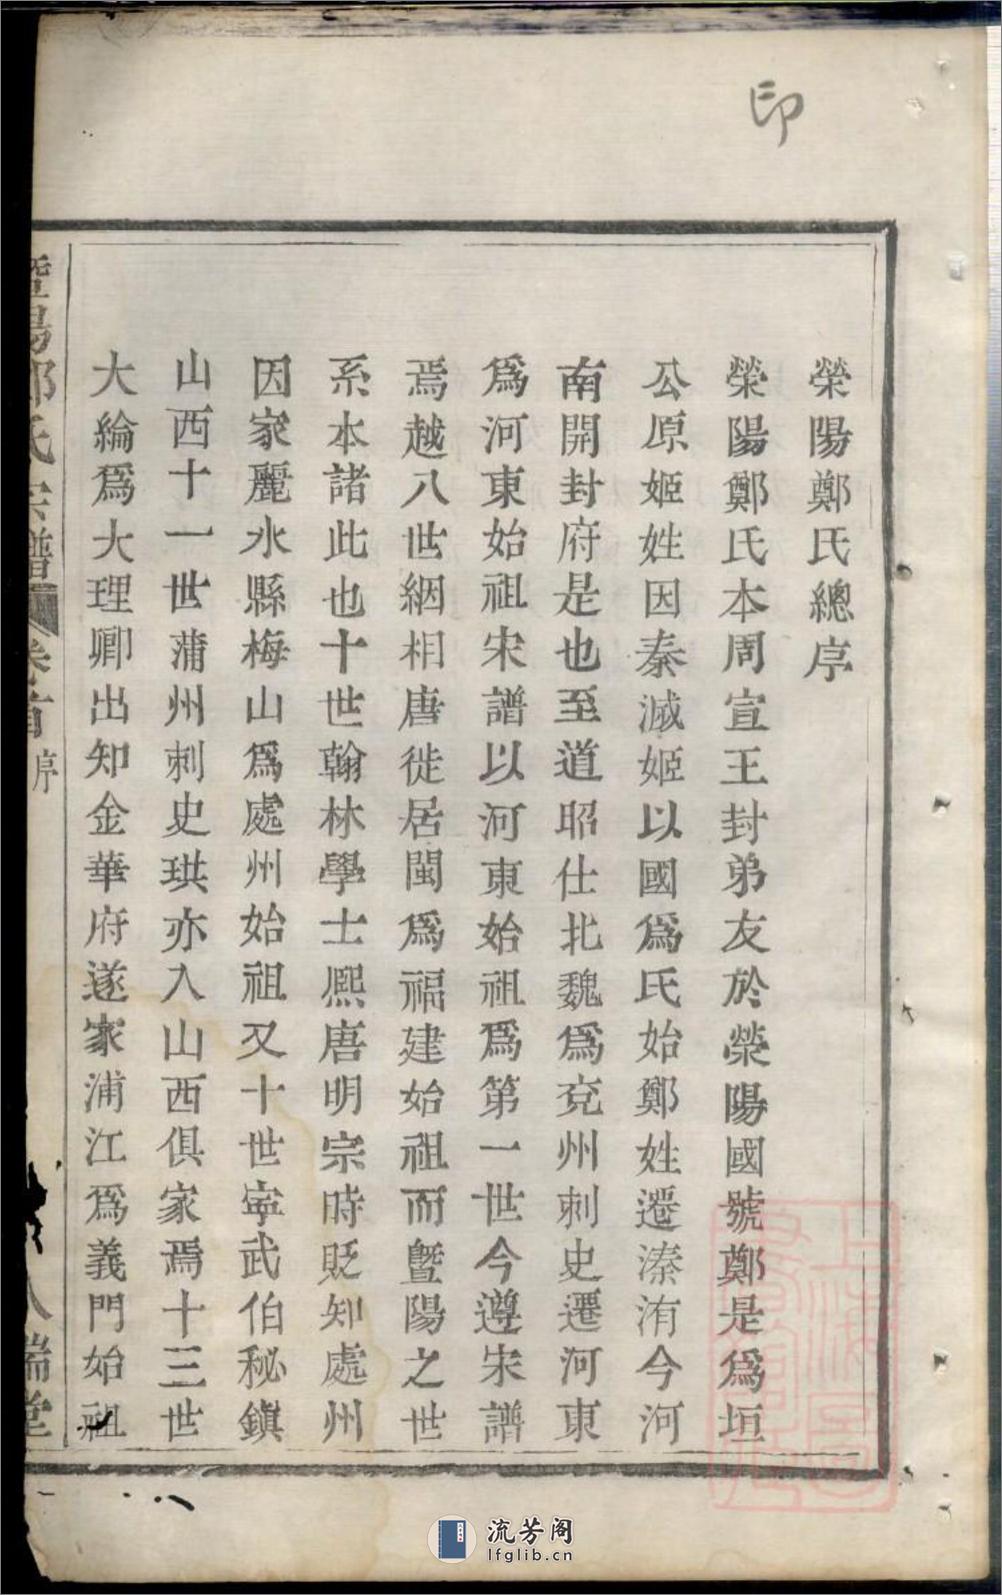 印
滎陽鄭氏總序
滎陽鄭氏本周宣王封弟友於滎陽國號鄭是爲垣
公原姬姓因秦滅姬以國爲氏始鄭姓遷溱洧今河
南開封府是也至道昭仕北魏爲兗州刺史遷河東
爲河東始祖宋譜以河東始祖爲第一世今遵宋譜
焉越八世絪相唐徙居閩爲福建始祖而暨陽之世
系本諸此也十世翰林學士熙唐明宗時貶知處州
因家麗水縣梅山爲處州始祖又十世寧武伯秘鎮
山西十一世蒲州刺史珙亦入山西俱家焉十三世
大綸爲大理卿出知金華府遂家浦江爲義門始祖
暨陽鄭氏宗譜 卷首 序 八 瑞堂
流芳阁
lfglib.cn